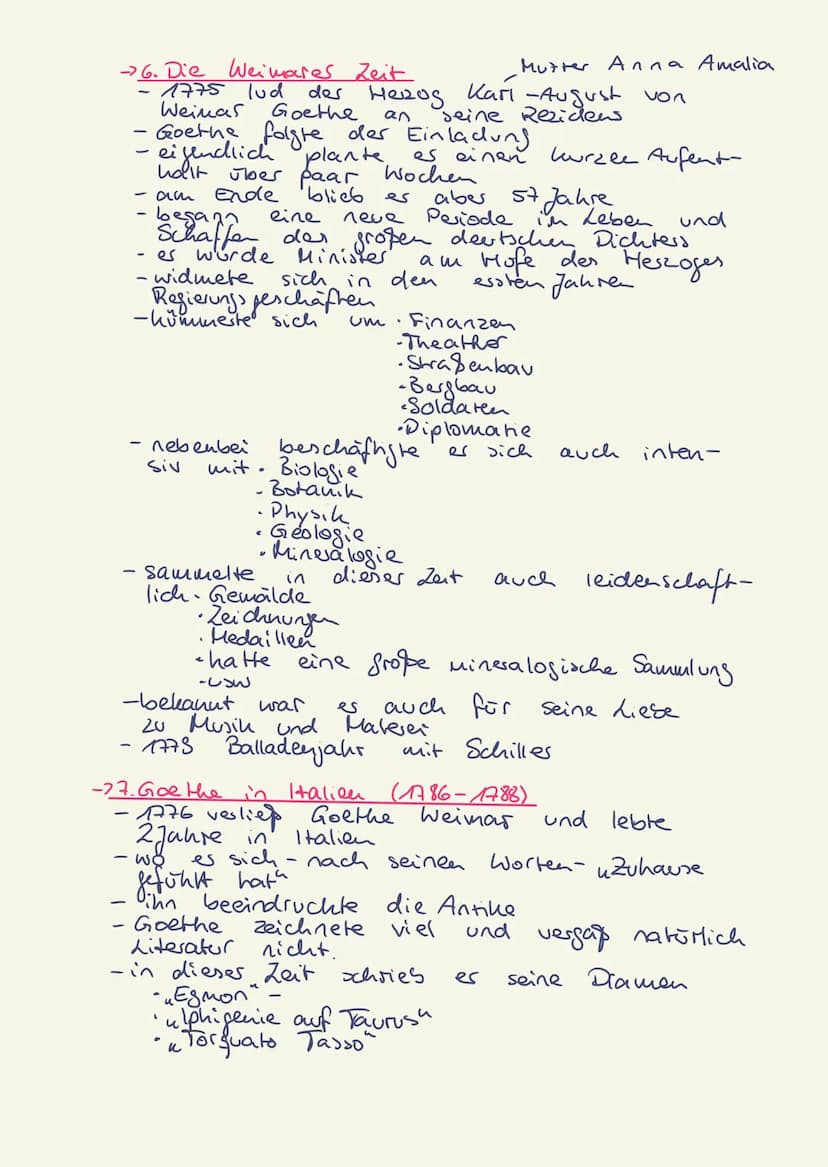 →6. Die Weimarer Zeit
Mutter Anna Amalia
- 1775 lud der Herzog Karl-August von
Weimar Goethe an seine Rezidens
- Goethe folgte der Einladung
- eigendlich plante er einen kurzen Aufent-
halt über paar Wochen
- am Ende blieb er aber 57 Jahre
- begann eine neue Periode im Leben und
Schaffen des großen deutschen Dichters
- er wurde Minister am Hofe des Herzoges
- widmete sich in den ersten Jahren
Regierungsgeschäften
- kümmerte sich um · Finanzen
· Theather
· Straßenbau
· Bergbau
· Soldaten
· Diplomatie
- nebenbei beschäftigte er sich auch inten-
siv mit · Biologie
· Botanik
· Physik
· Geologie
· Mineralogie
- sammelte in dieser Zeit auch leidenschaft-
lich · Gemälde
· Zeichnungen
· Medaillen
· hatte eine große mineralogische Sammlung
· usw
- bekannt war er auch für seine Liebe
zu Musik und Malerei
- Balladenjahr mit Schiller
→7. Goethe in Italien (1786-1788)
- 1776 verließ Goethe Weimar und lebte
2 Jahre in Italien
- wo er sich - nach seinen Worten - „Zuhause
gefühlt hat“
- ihn beeindruckte die Antike
- Goethe zeichnete viel und vergaß natürlich
Literatur nicht.
- in dieser Zeit schrieb er seine Dramen
· „Egmon“ -
· „Iphigenie auf Taurus“
· „Torquato Tasso“